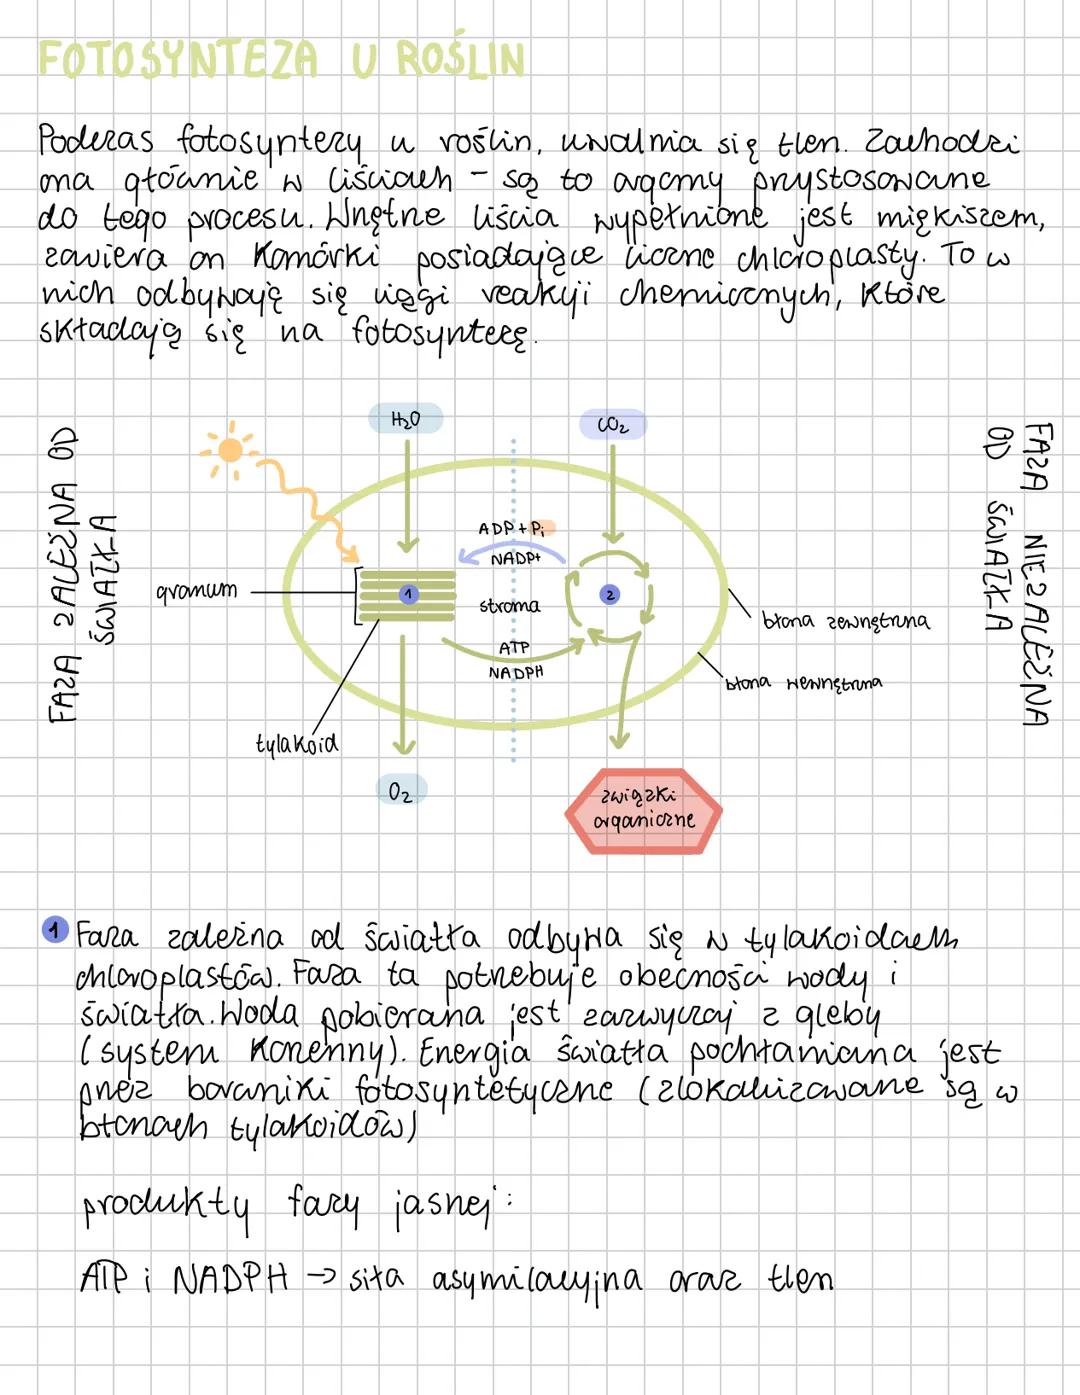 FOTOSYNTEZA U ROŚLIN
Podczas fotosyntezy u roślin, uwalnia się tlen. Zachodzi
ona głównie w liściach - są to organy przystosowane
do tego procesu. Wnętrze liścia wypełnione jest miękiszem,
zawiera on komórki posiadające liczne chloroplasty. To w
nich odbywają się ciągi reakcji chemicznych, które
składają się na fotosyntezę.
FAZA ZALEŻNA OD
ŚWIATŁA
H₂O
CO₂
FAZA NIEZALEŻNA
OD ŚWIATŁA
ADP + Pi
NADP+
granum
1
stroma
2
błona zewnętrzna
ATP
NADPH
błona wewnętrzna
tylakoid
O₂
związki
organiczne
1 Faza zależna od światła odbywa się w tylakoidach
chloroplastów. Faza ta potrzebuje obecności wody i
światła. Woda pobierana jest zazwyczaj z gleby
(system korzenny). Energia światła pochłaniana jest
przez barwniki fotosyntetyczne (zlokalizowane są w
błonach tylakoidów)
produkty fazy jasnej:
ATP i NADPH → siła asymilacyjna oraz tlen